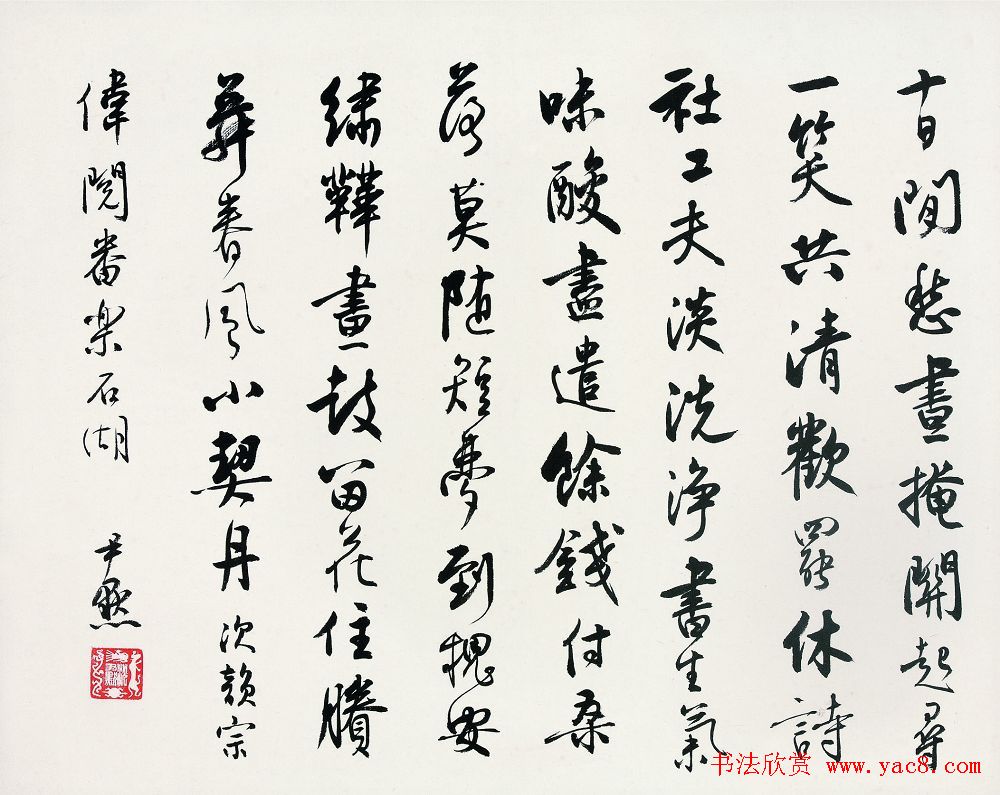 十日閒愁晝掩關起尋
一笑共清歡罷休詩
社工夫淡洗淨書生氣
味酸盡遣餘錢付桑
落莫随短夢到槐安
繡韉畫鼓留花住賸
舞春風小契丹 次韻宗
偉閱番楽石湖 尹默
书法欣赏 www.yac8.com